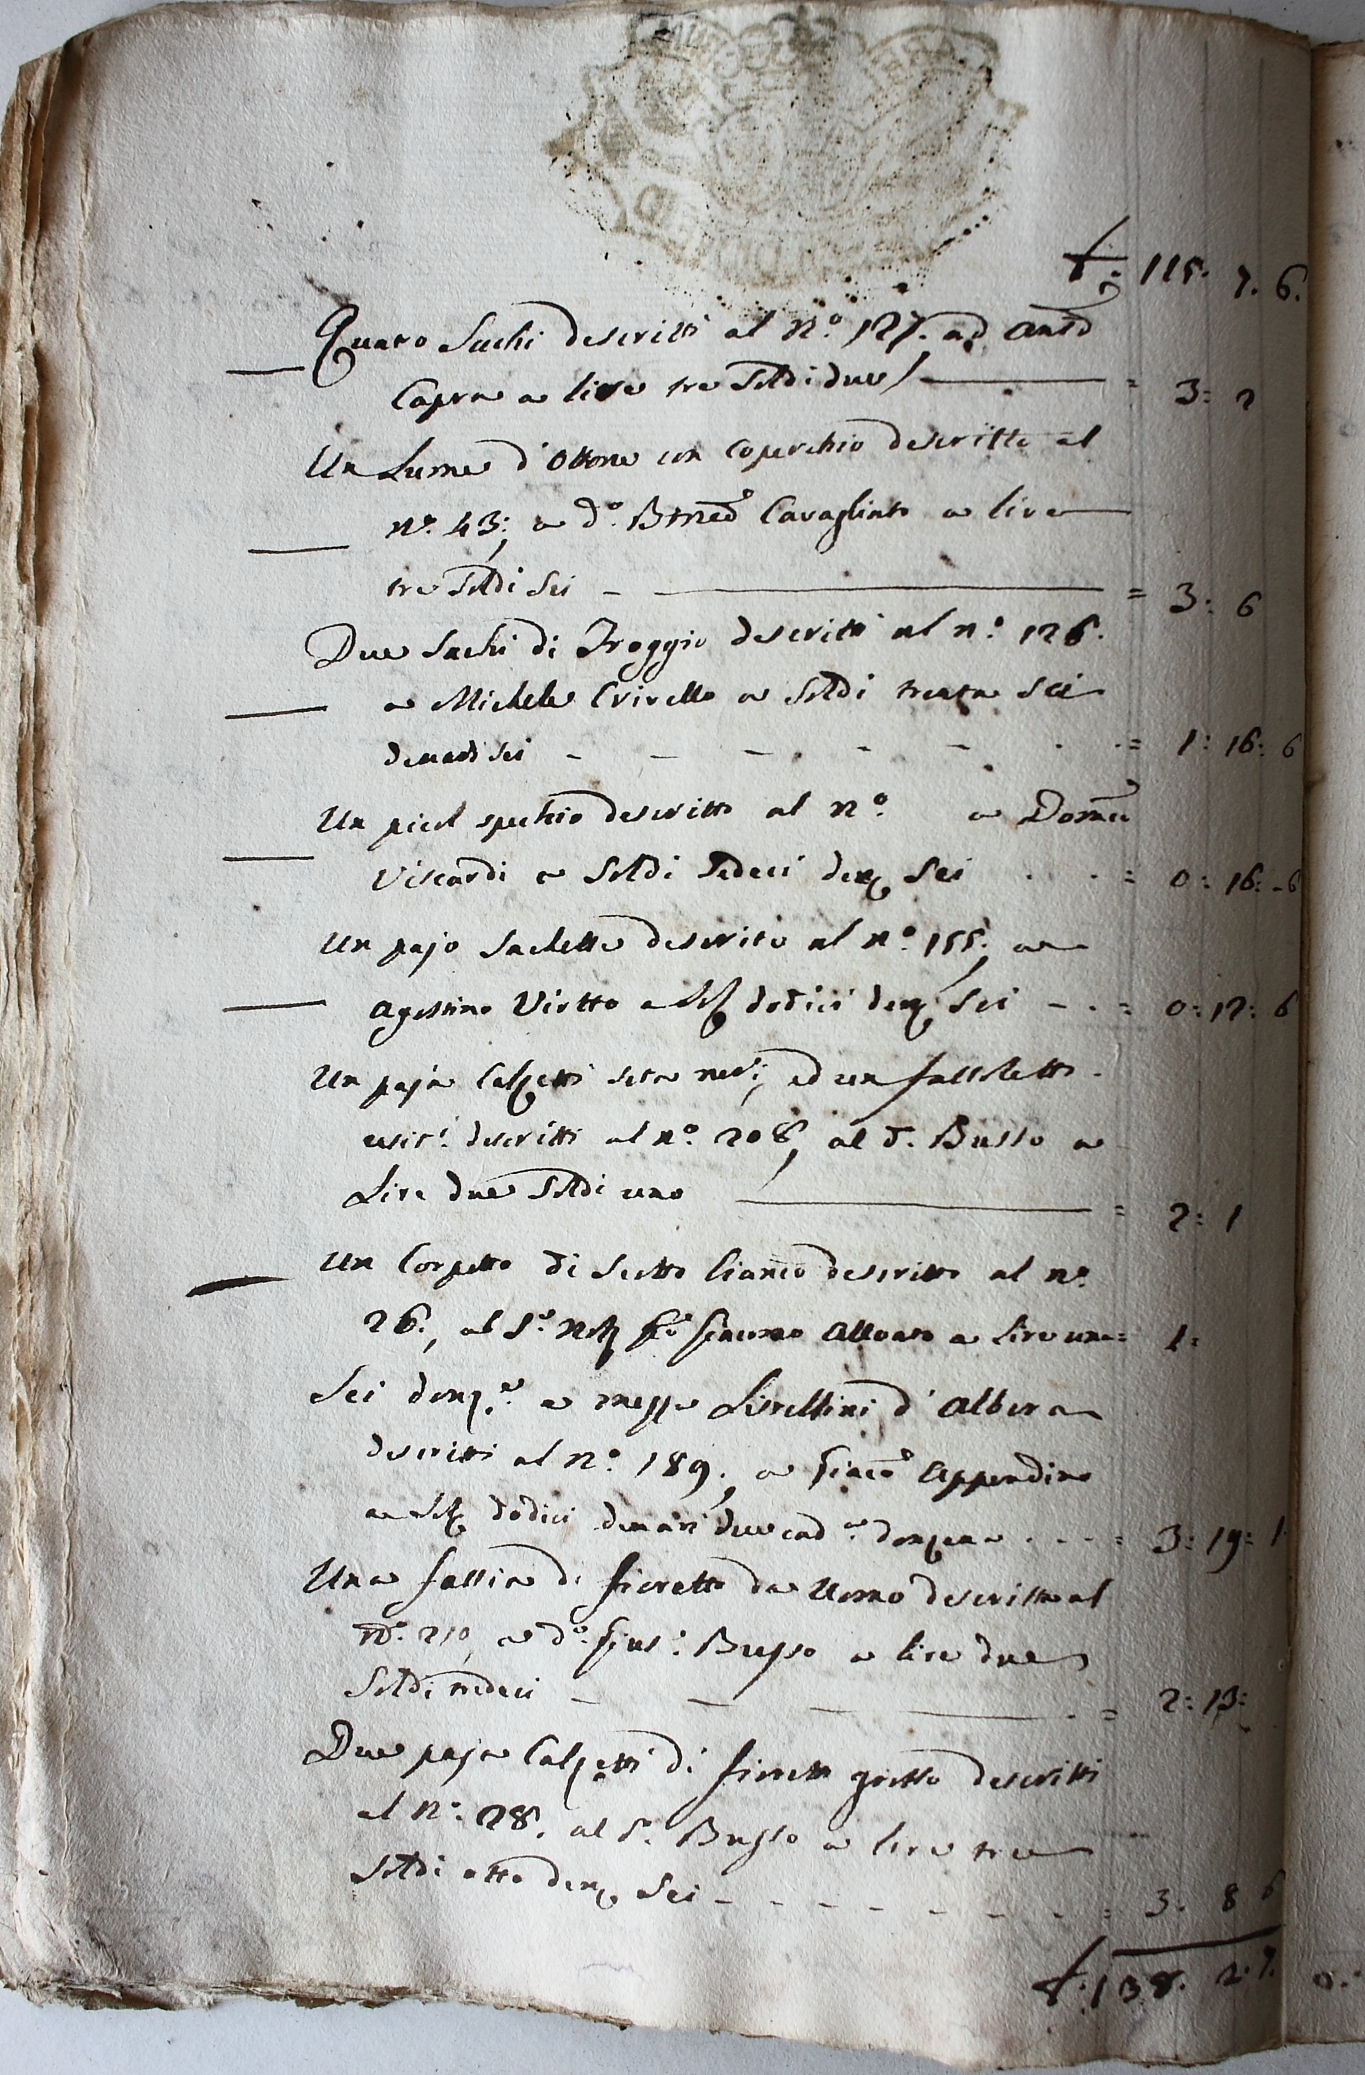 £ = 115. 7. 6.
Quatro Sachi descritti al N.° 127. ad Ant.°
Capra a lire tre Soldi due = 3: 2
Un Lume d'ottone con coperchio descritto al
n.° 43; a d.° Cavagliato a lire
tre Soldi Sei = 3: 6
Due Sachi di descritti al n.° 126.
a Michele Crivello a Soldi trenta Sei
denari Sei = 1: 16: 6
Un picol spechio descritto al N.° a Dom.co
Viscardi a Soldi Sedeci den. Sei = 0: 16: 6
Un pajo Sachette descrite al n.° 155; a
Agostino Viotto a Sol. dodici den. Sei = 0: 12: 6
Un paja Calzetti seta ner; ed un falloletto
descritti al n.° 208, al S. Busso a
Lire due Soldi uno = 2: 1
Un Corpetto di bianco descritto al n.°
26., al S. Not. Giacomo Allonato a Lire una = 1:
Sei donz.e e mezza d'Albera
descritti al N.° 189, a Giaco Appendino
a Sol. dodici denari due cad.a donzena = 3: 19: 1
Una di fioretto da Uomo descritta al
N.° 210, a d.° Gius: Busso a lire due
Soldi tredeci = 2: 13:
Due paja Calzetti di fioretto descritti
al N.° 28. al S. Busso a lire tre
Soldi otto den. Sei = 3. 8 6
£. 138. 2. 7.